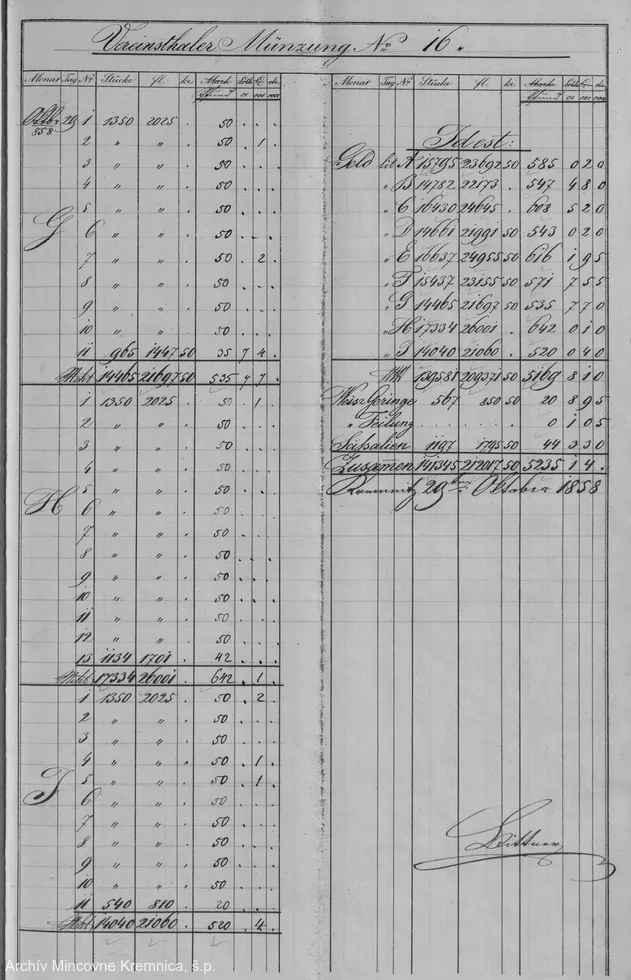 Vereinsthaler Münzung No 16.
Monat Tag No Stücke fl. kr. Mark Pfund
Oktbr 29 1 1350 2025 . 50 . . .
858
2 " " . 50 . 1 .
3 " " . 50 . . .
4 " " . 50 . . .
5 " " . 50 . . .
G 6 " " . 50 . . .
7 " " . 50 . 2 .
8 " " . 50 . . .
9 " " . 50 . . .
10 " " . 50 . . .
11 965 1447 50 35 7 4 .
14465 21697 50 535 7 7 .
1 1350 2025 . 50 . 1 .
2 " " . 50 . . .
3 " " . 50 . . .
4 " " . 50 . . .
5 " " . 50 . . .
H 6 " " . 50 . . .
7 " " . 50 . . .
8 " " . 50 . . .
9 " " . 50 . . .
10 " " . 50 . . .
11 " " . 50 . . .
12 " " . 50 . . .
13 1134 1701 . 42 . . .
17334 26001 . 642 . 1 .
1 1350 2025 . 50 . 2 .
2 " " . 50 . . .
3 " " . 50 . . .
4 " " . 50 . 1 .
5 " " . 50 . 1 .
J 6 " " . 50 . . .
7 " " . 50 . . .
8 " " . 50 . . .
9 " " . 50 . . .
10 " " . 50 . . .
11 540 810 . 20 . . .
14040 21060 . 520 . 4 .
Monat Tag No Stücke fl. kr. Mark Pfund
Idest:
Geld lit A 15795 23692 50 585 0 2 0
" B 14782 22173 . 547 4 8 0
" C 16430 24645 . 608 5 2 0
" D 14661 21991 50 543 0 2 0
" E 16637 24955 50 616 1 9 5
" F 15437 23155 50 571 7 5 5
" G 14465 21697 50 535 7 7 0
" H 17334 26001 . 642 0 1 0
" J 14040 21060 . 520 0 4 0
139581 209371 50 5169 8 1 0
Weisz Geringe 567 850 50 20 8 9 5
" Teilung . . 0 1 0 5
1197 1795 50 44 3 3 0
Zusamen 141345 212017 50 5235 1 4 .
Kremnitz 29ten Oktober 1858
Bittner
Archív Mincovne Kremnica, š.p.